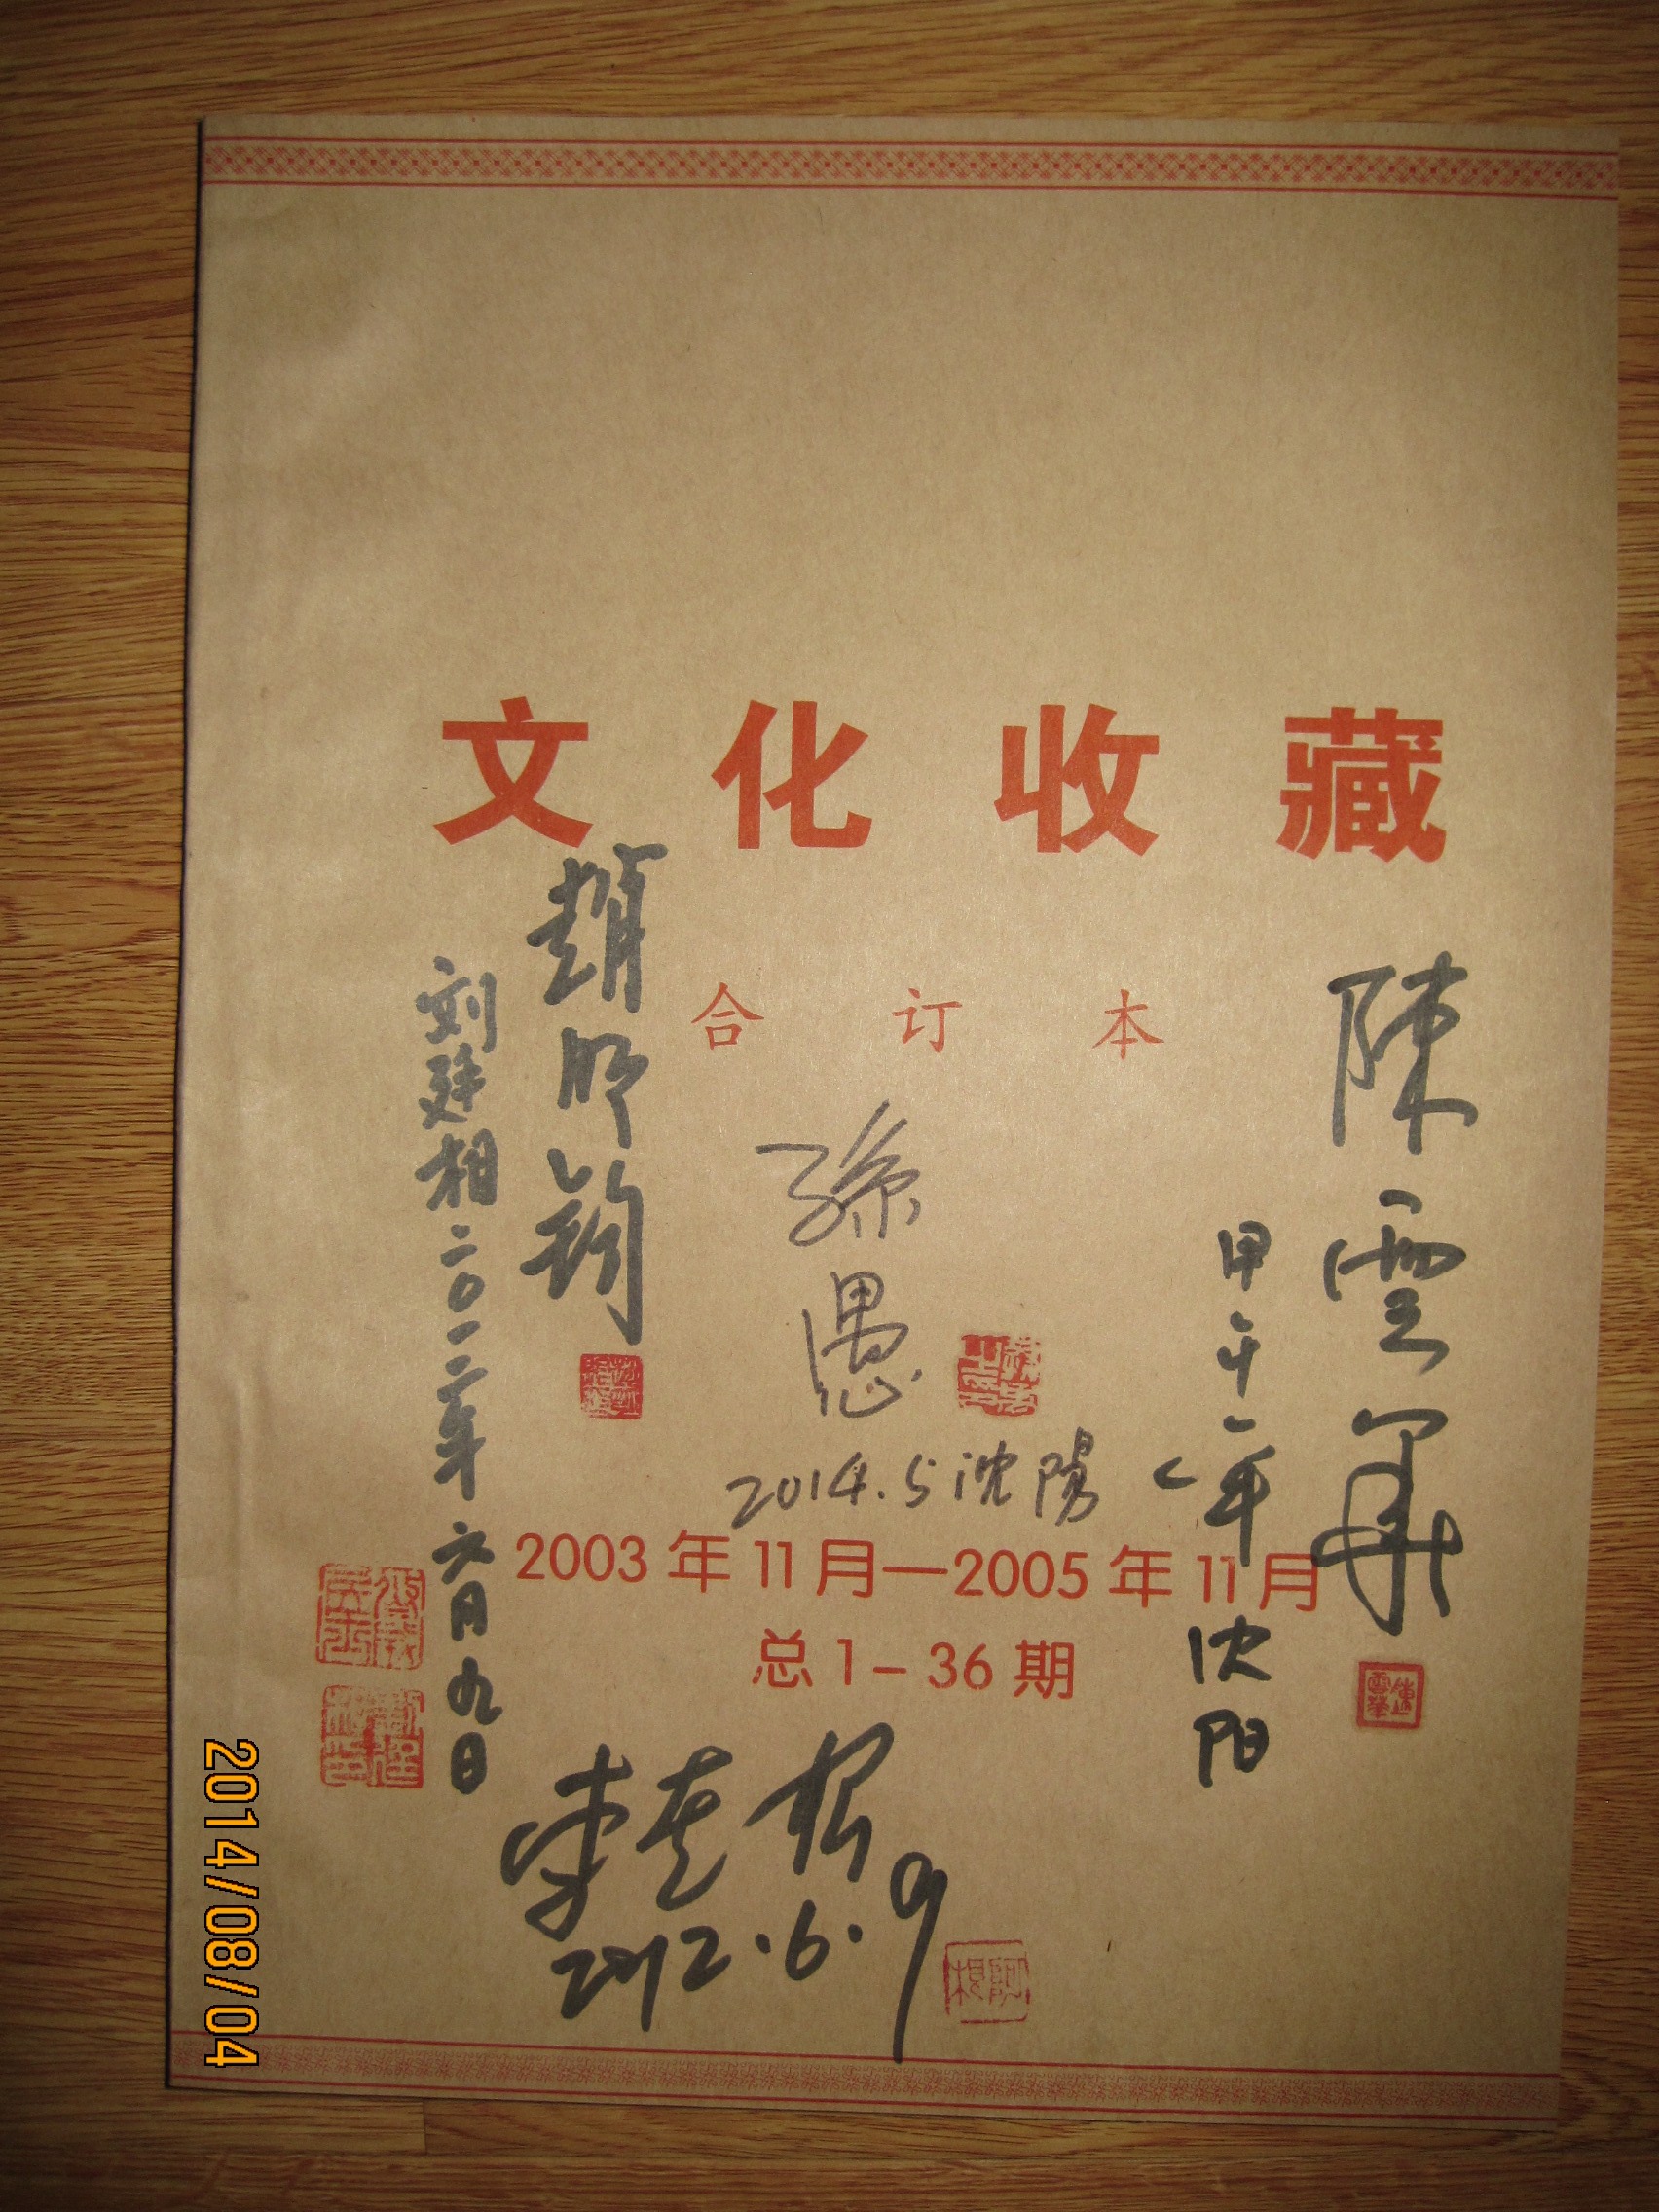 文化收藏
合订本
陳雲華
甲午年
沈阳
孫愚
2014.5 沈陽
趙明鈞
刘建相二〇一二年六月九日
2003年11月—2005年11月
总1-36期
2012.6.9
2014/08/04